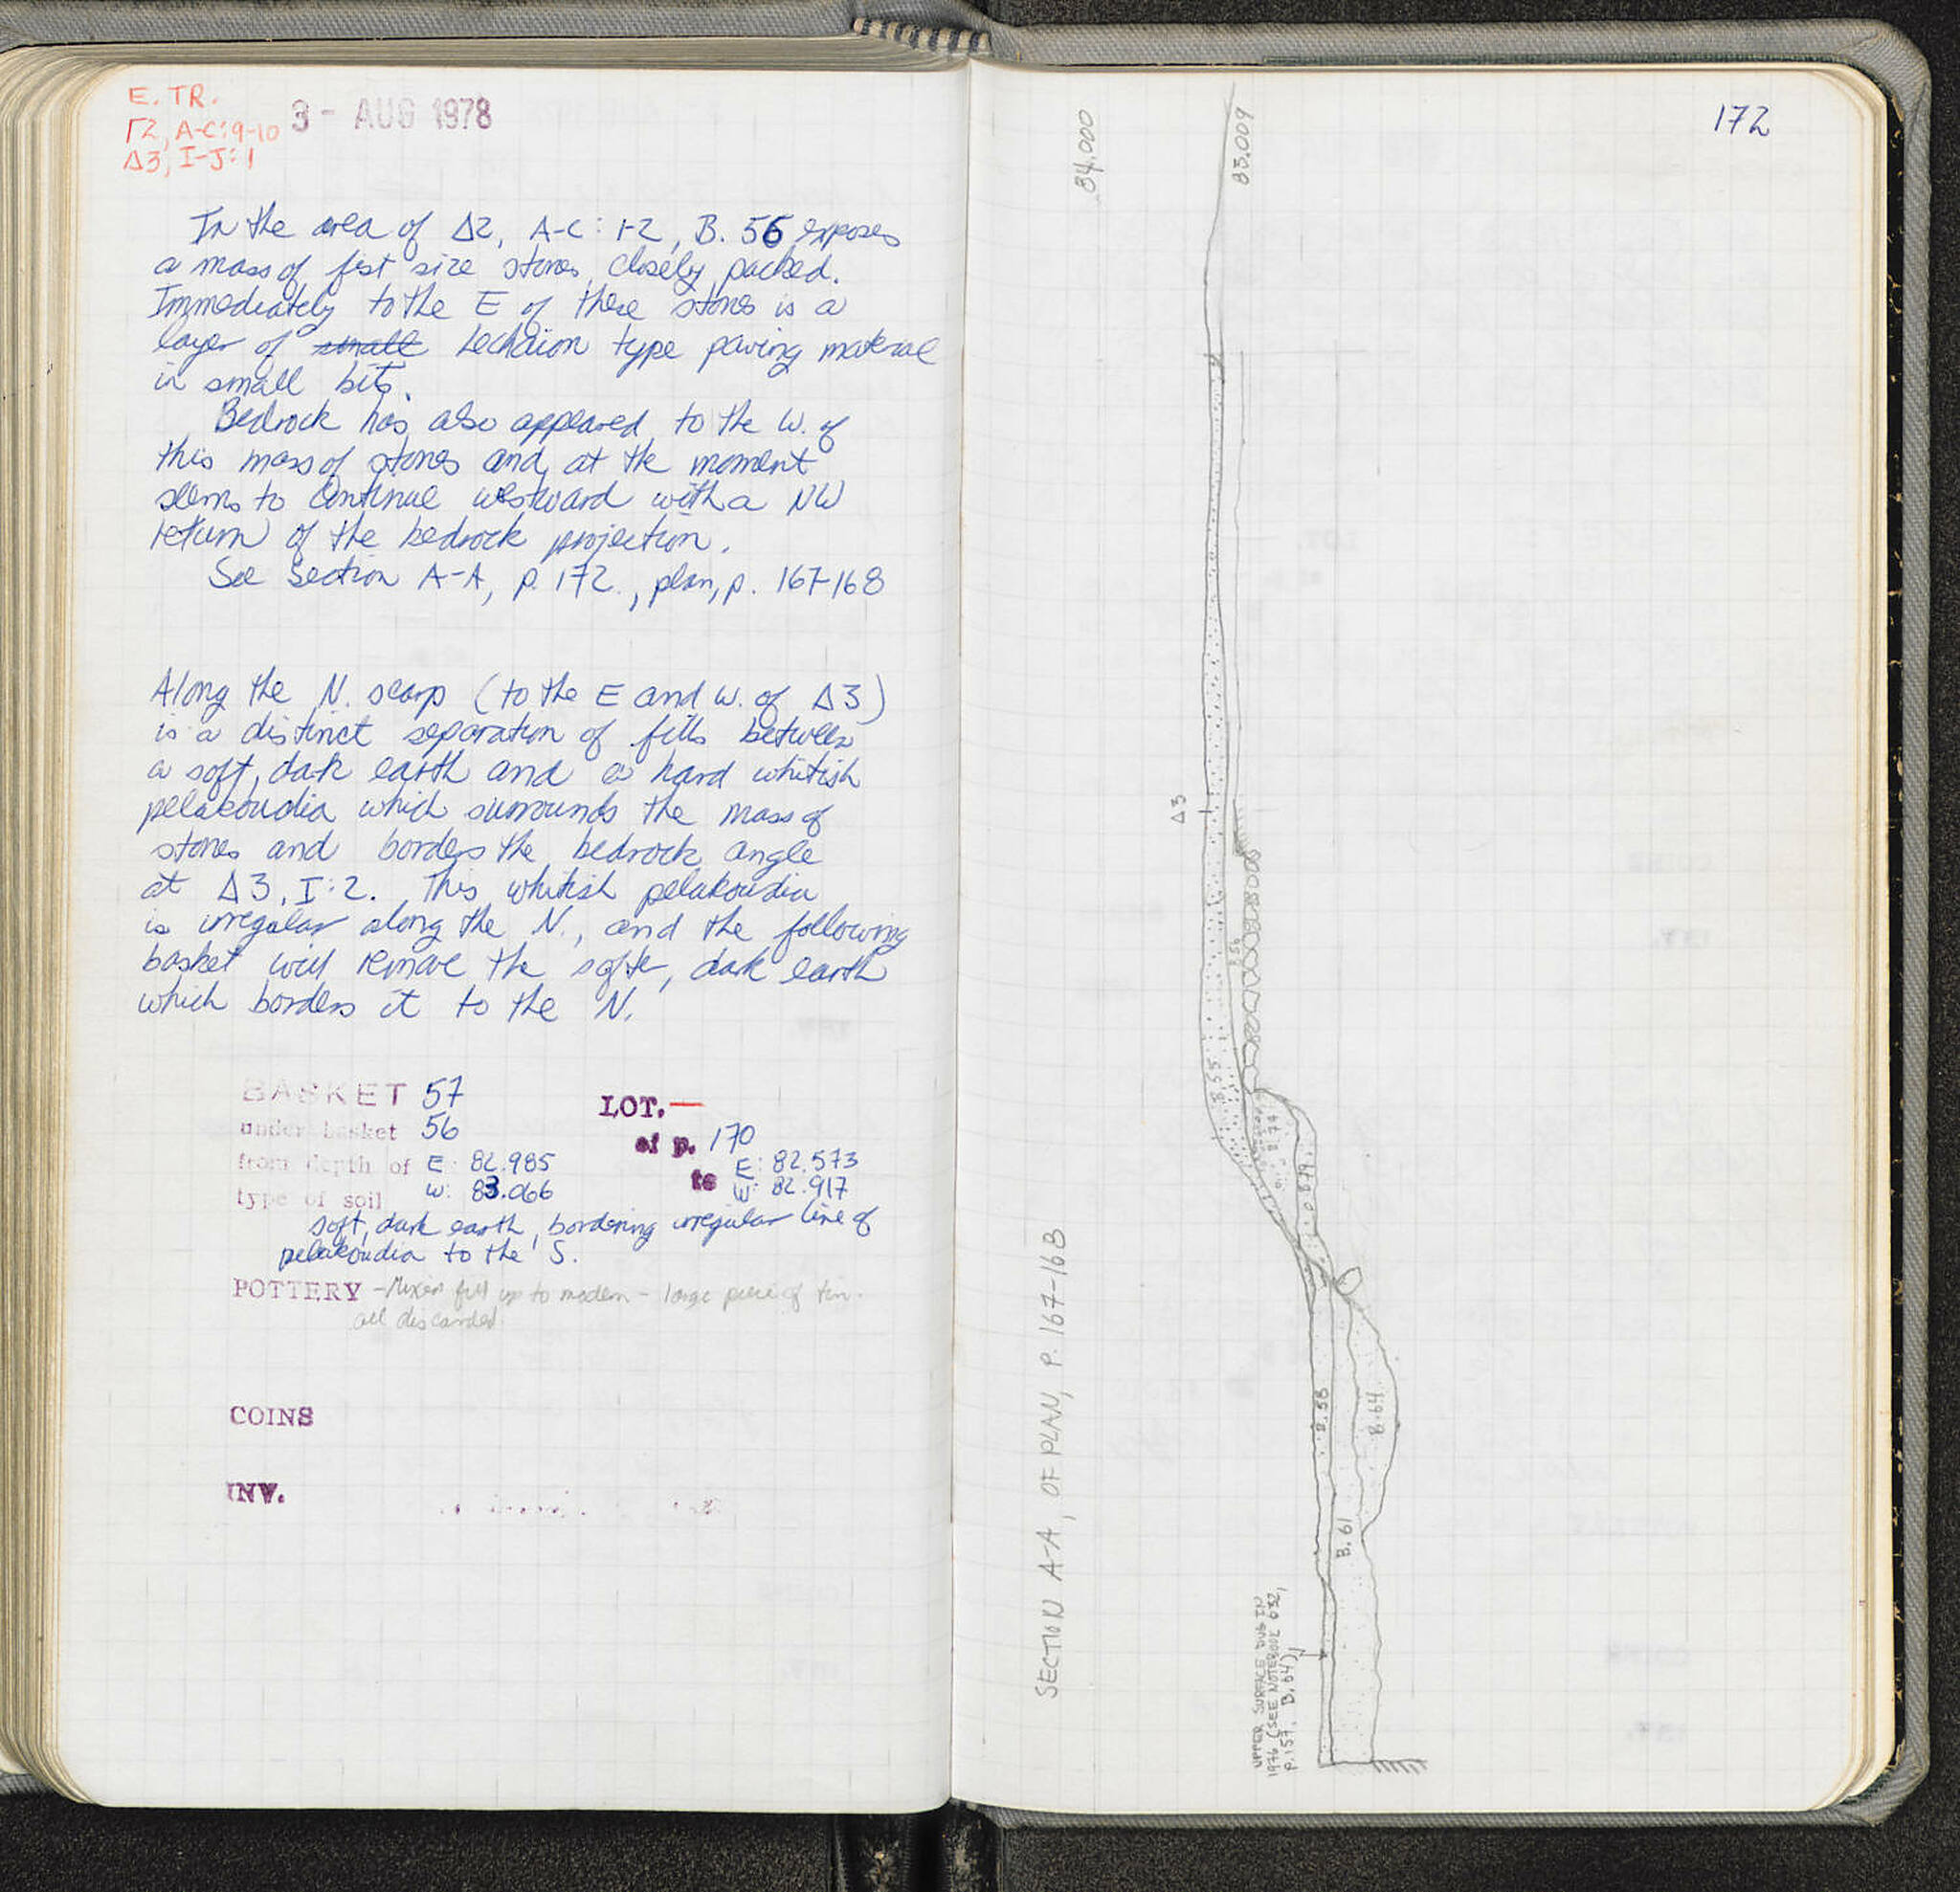 E. TR.
Γ2, A-C:9-10
Δ3, I-J:1
3 - AUG 1978
In the area of Δ2, A-C: 1-2, B. 56 exposes
a mass of fist size stones, closely packed.
Immediately to the E of these stones is a
layer of small Lechaion type paving material
in small bits.
Bedrock has also appeared to the W. of
this mass of stones and, at the moment
seems to continue westward with a NW
return of the bedrock projection.
See Section A-A, p. 172., plan, p. 167-168
Along the N. scarp (to the E and W. of Δ3)
is a distinct separation of fills between
a soft, dark earth and a hard whitish
pelakoudia which surrounds the mass of
stones and borders the bedrock angle
at Δ3, I:2. This whitish pelakoudia
is irregular along the N., and the following
basket will remove the softer, dark earth
which borders it to the N.
BASKET 57
under basket 56
LOT. —
of p. 170
from depth of E: 82.985
W: 83.066
to E: 82.573
W: 82.917
type of soil
soft, dark earth, bordering irregular line of
pelakoudia to the S.
POTTERY - Mixed fill up to modern - large piece of tin.
all discarded.
COINS
INV.
172
84.000
83.009
Δ3
B.56
B.55
B.79
B.58
B.64
B.61
SECTION A-A, OF PLAN, P. 167-168
UPPER SURFACE DUG IN
1976 (SEE NOTEBOOK 632,
P.157, B.64)